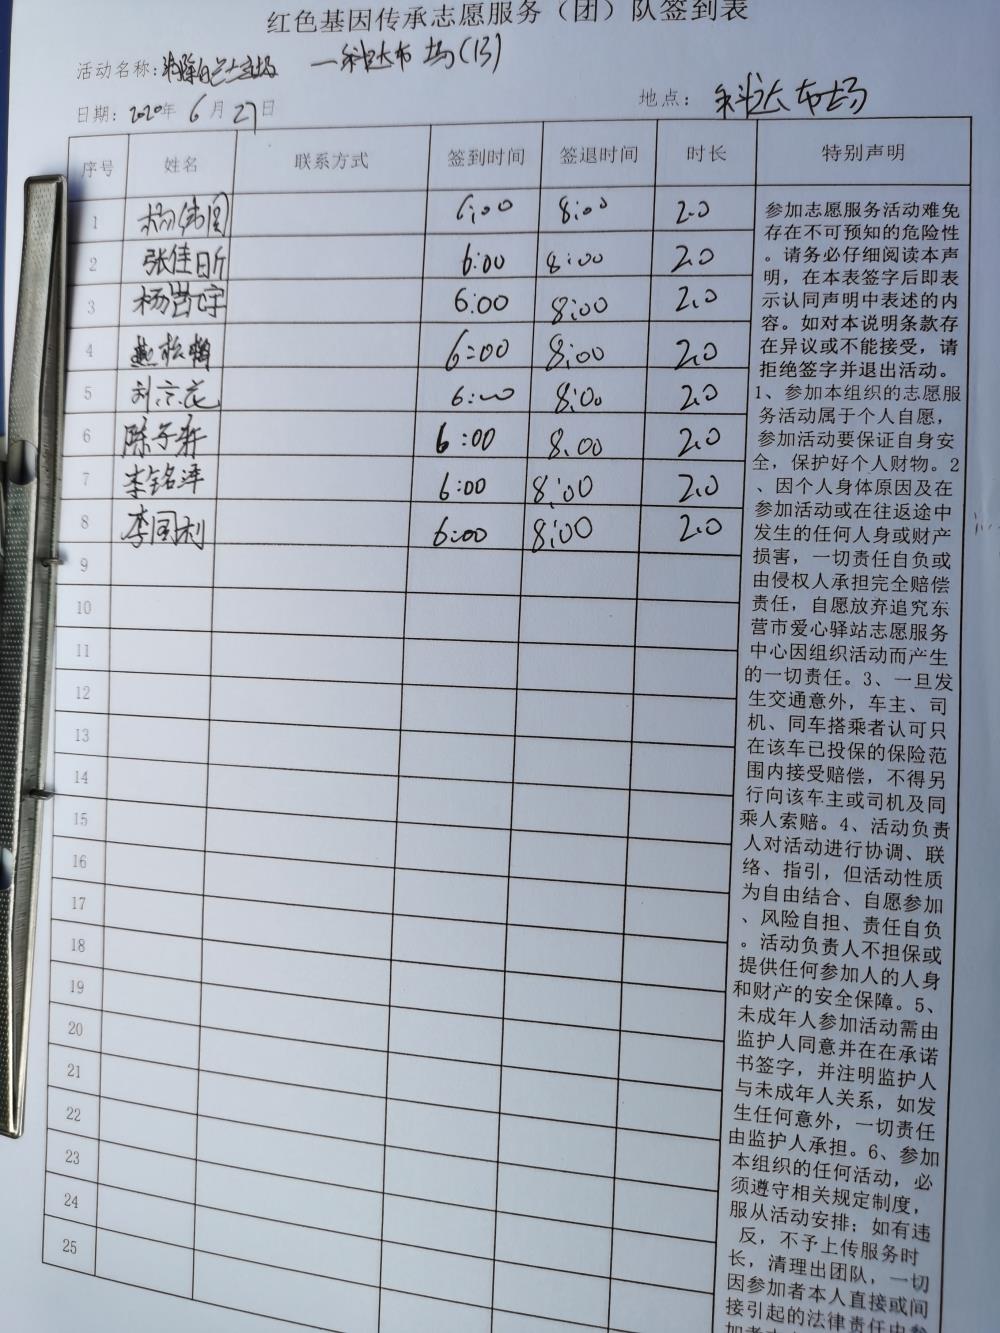 红色基因传承志愿服务（团）队签到表
活动名称:清除白色垃圾 一科达市场(13)
日期: 2020年 6 月 27日 地点: 科达市场
序号 姓名 联系方式 签到时间 签退时间 时长 特别声明
1 杨伟国 6:00 8:00 2.0
2 张佳昕 6:00 8:00 2.0
3 杨 宇 6:00 8:00 2.0
4 松 6:00 8:00 2.0
5 刘 花 6:00 8:00 2.0
6 陈子新 6:00 8:00 2.0
7 李铭泽 6:00 8:00 2.0
8 李国利 6:00 8:00 2.0
9
10
11
12
13
14
15
16
17
18
19
20
21
22
23
24
25
参加志愿服务活动难免
存在不可预知的危险性
。请务必仔细阅读本声
明，在本表签字后即表
示认同声明中表述的内
容。如对本说明条款存
在异议或不能接受，请
拒绝签字并退出活动。
1、参加本组织的志愿服
务活动属于个人自愿，
参加活动要保证自身安
全，保护好个人财物。2
、因个人身体原因及在
参加活动或在往返途中
发生的任何人身或财产
损害，一切责任自负或
由侵权人承担完全赔偿
责任，自愿放弃追究东
营市爱心驿站志愿服务
中心因组织活动而产生
的一切责任。3、一旦发
生交通意外，车主、司
机、同车搭乘者认可只
在该车已投保的保险范
围内接受赔偿，不得另
行向该车主或司机及同
乘人索赔。4、活动负责
人对活动进行协调、联
络、指引，但活动性质
为自由结合、自愿参加
、风险自担、责任自负
。活动负责人不担保或
提供任何参加人的人身
和财产的安全保障。5、
未成年人参加活动需由
监护人同意并在在承诺
书签字，并注明监护人
与未成年人关系，如发
生任何意外，一切责任
由监护人承担。6、参加
本组织的任何活动，必
须遵守相关规定制度，
服从活动安排；如有违
反，不予上传服务时
长，清理出团队，一切
因参加者本人直接或间
接引起的法律责任由参